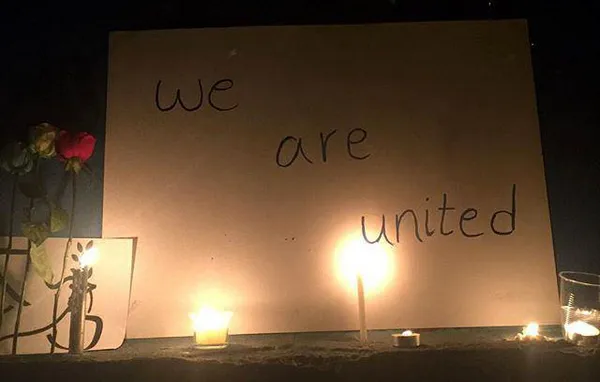 we
are
united